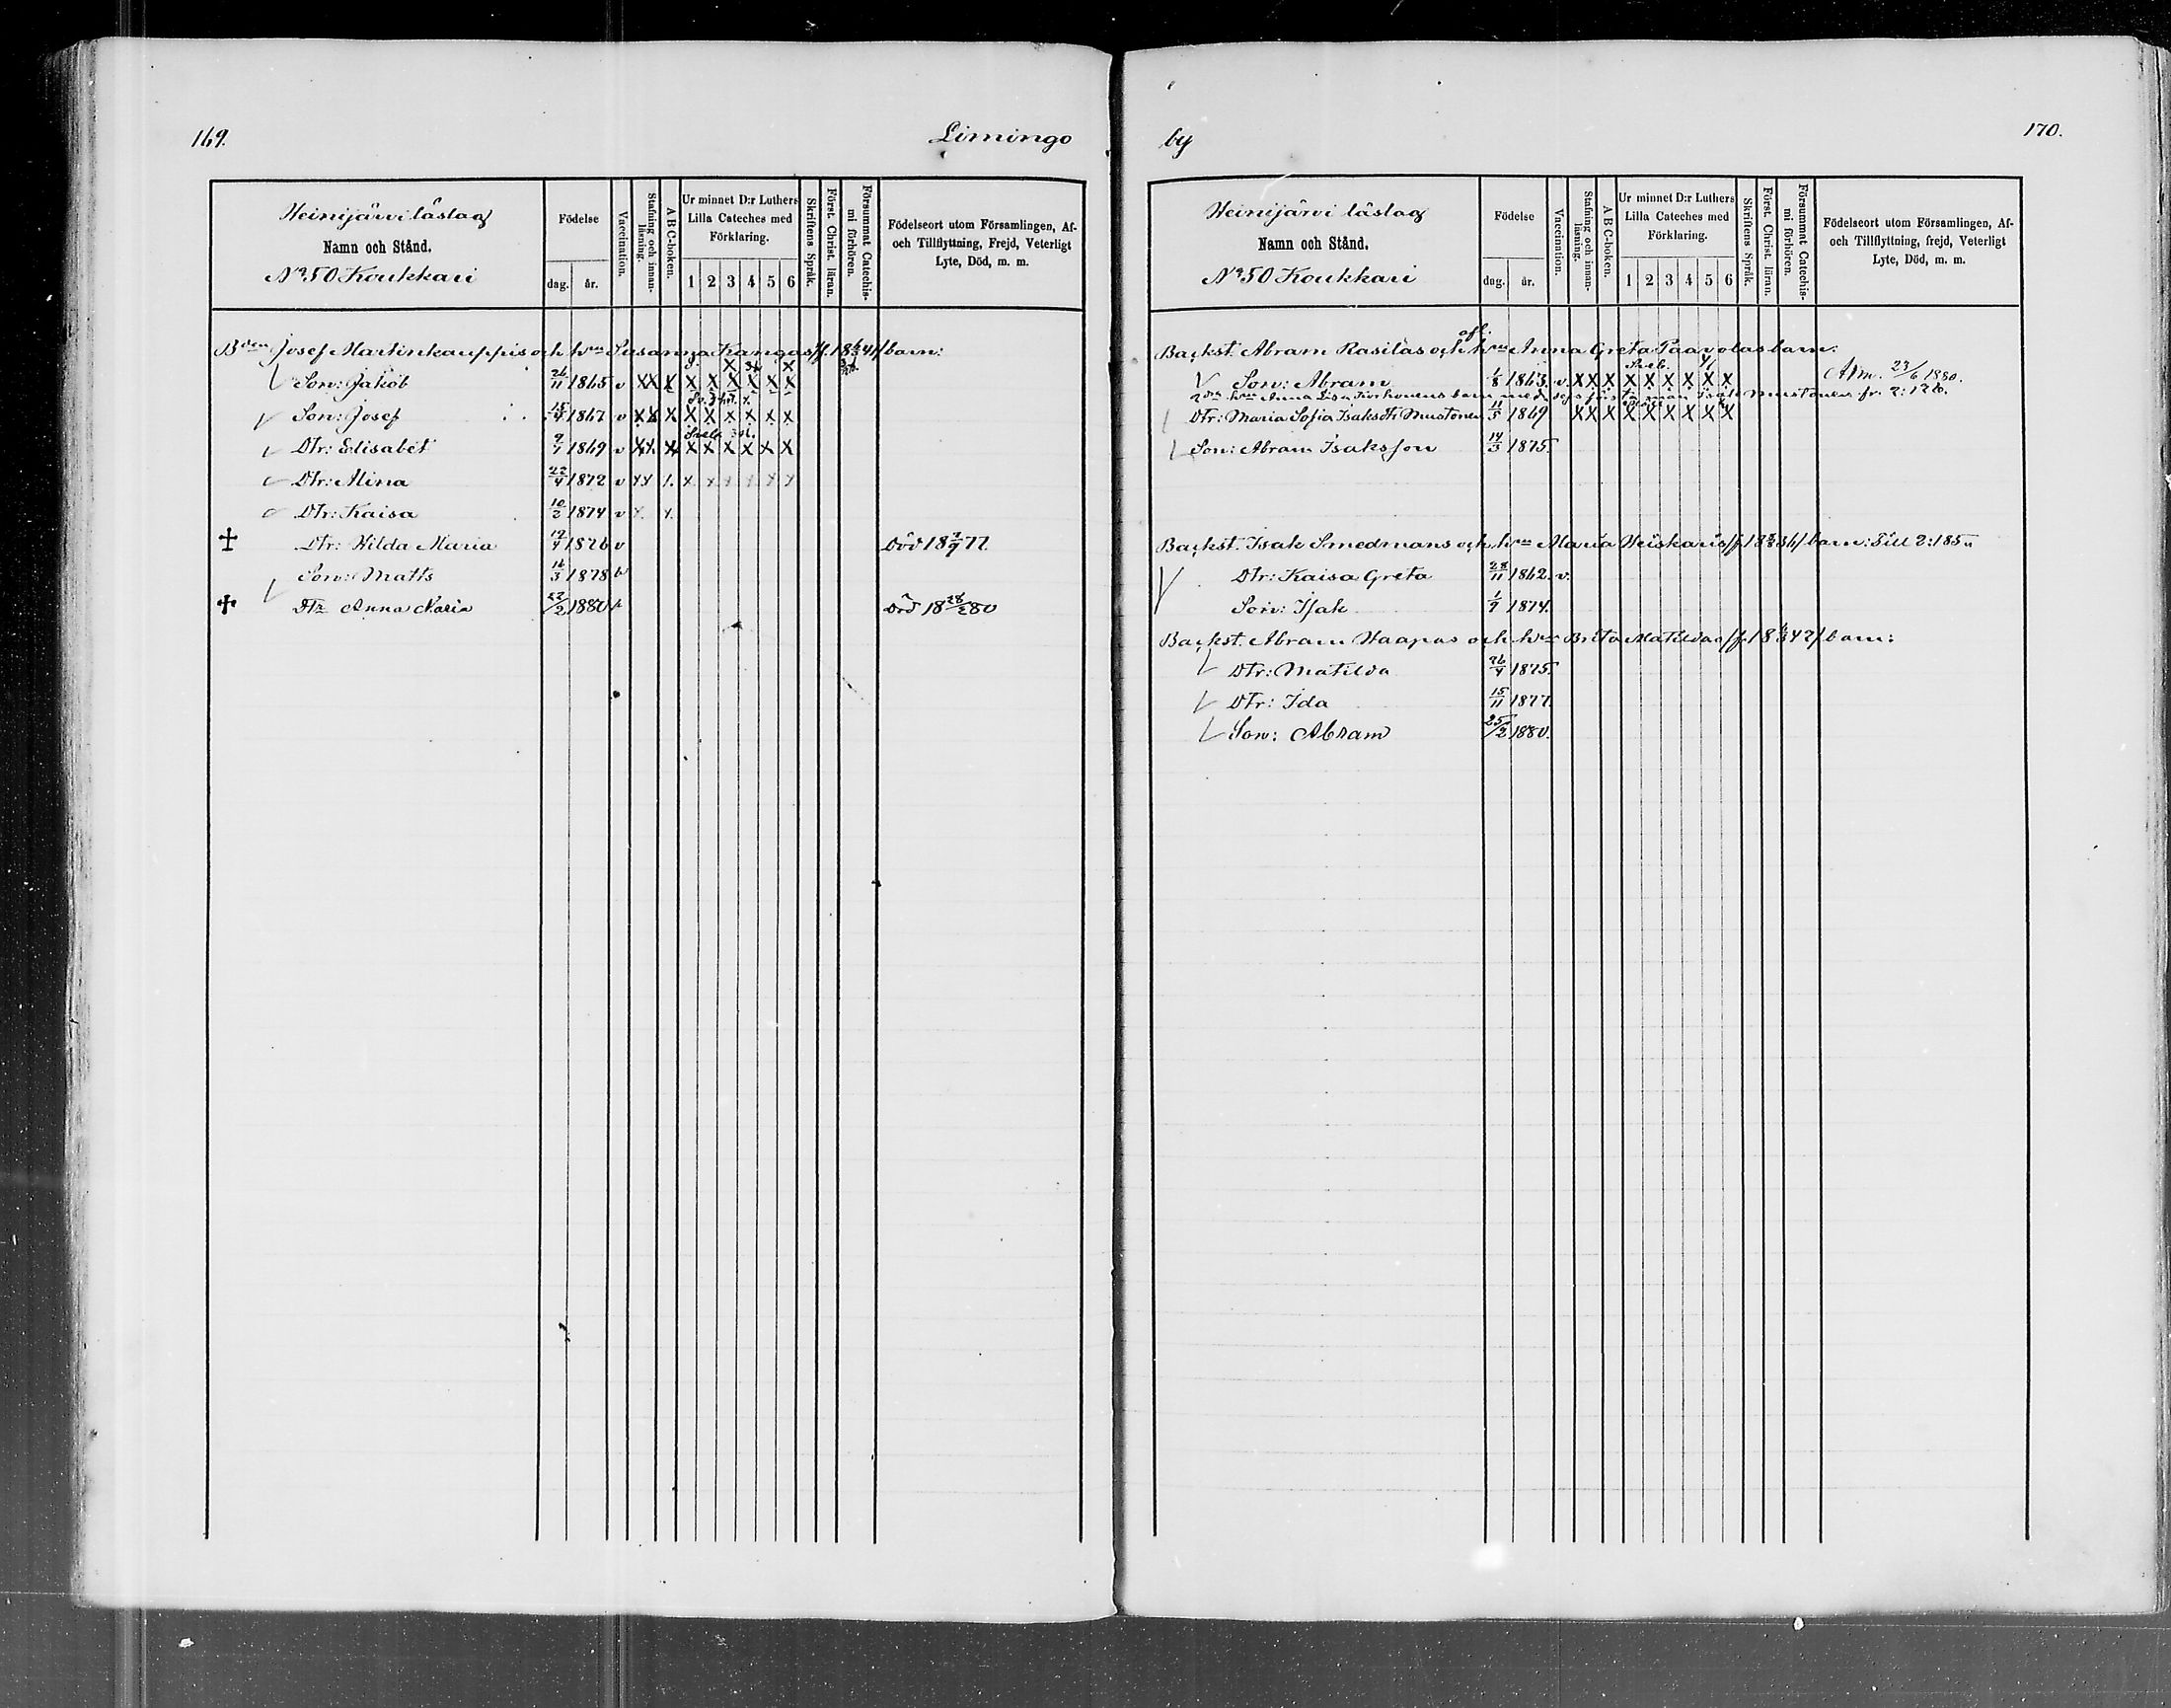 169.
Limingo
Heinijärvi läslag
Namn och Stånd.
No 50 Koukkari
Födelse
dag.
år.
Vaccination.
Stafning och innan-
läsning.
A B C-boken.
Ur minnet D:r Luthers
Lilla Cateches med
Förklaring.
1 2 3 4 5 6
Skriftens Språk.
Först. Christ. läran.
Försummat Catechis-
mi förhören.
Födelseort utom Församlingen, Af-
och Tillflyttning, Frejd, Veterligt
Lyte, Död, m. m.
Bden Josef Martinkauppis och hrn Susanna Kangas barn:
Son: Jakob 26/11 1865 v XX X X X X X X X
Son: Josef 1867 v XX X X X X X X X
Dtr: Elisabet 1869 v XX X X X X X X X
Dtr: Mina 22/4 1872 v XX X. X X X X X X
Dtr: Kaisa 10/2 1874 v X X
Dtr: Hilda Maria 1876 v Död 18 77
Son: Matts 16/3 1878 v
Dtr Anna Maria 22/2 1880 Död 18 28/2 80
by
170.
Heinijärvi läslag
Namn och Stånd.
No 50 Koukkari
Födelse
dag.
år.
Vaccination.
Stafning och innan-
läsning.
A B C-boken.
Ur minnet D:r Luthers
Lilla Cateches med
Förklaring.
1 2 3 4 5 6
Skriftens Språk.
Först. Christ. läran.
Försummat Catechis-
mi förhören.
Födelseort utom Församlingen, Af-
och Tillflyttning, frejd, Veterligt
Lyte, Död, m. m.
afl.
Backst. Abram Rasilas och hrn Anna Greta Paavolas barn:
Son: Abram 1/8 1863. v. XX X X X X X X X Adm. 23/6 1880.
2dra hrn Anna Lisa barn med dess förra man Isak Mustonen fr. 2:128.
Dtr: Maria Sofia Isaksdtr Mustonen 11/5 1869 XX X X X X X X X
Son: Abram Isaksson 14/3 1875.
Backst. Isak Smedmans och hrn Maria Heiskaris barn: Till 2:185
Dtr: Kaisa Greta 28/11 1862. v.
Son: Isak 1874.
Backst. Abram Haapas och hrn Brita Matildas barn:
Dtr: Matilda 26/4 1875.
Dtr: Ida 15/11 1877.
Son: Abram 25/2 1880.